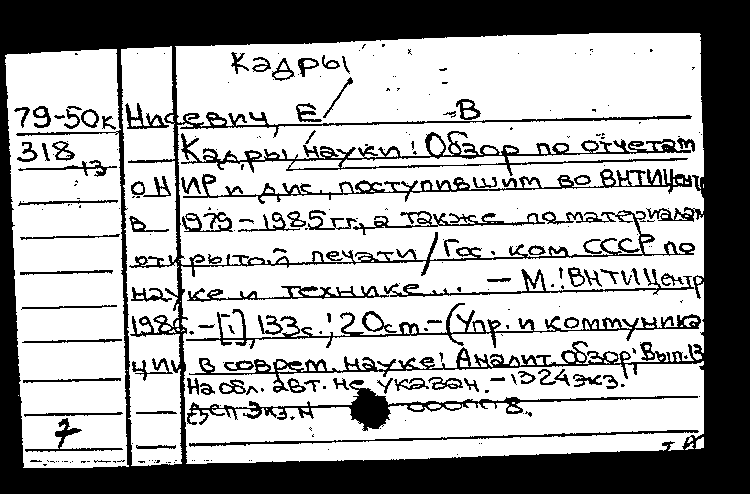 Кадры
79-50к Нисевич, Е В
318 Кадры науки: Обзор по отчетам
13
о НИР и дис., поступившим во ВНТИЦентр
в 1979-1985 гг., а также по материалам
открытой печати/Гос. ком СССР по
науке и технике... - М.: ВНТИЦентр
1986. - [1], 133с.; 20ст. - (Упр. и коммуника
ции в соврем. науке: Аналит. обзор; Вып. 13
На обл. авт. не указан. - 1324 экз.
ДСП. Экз. N 000008.
7